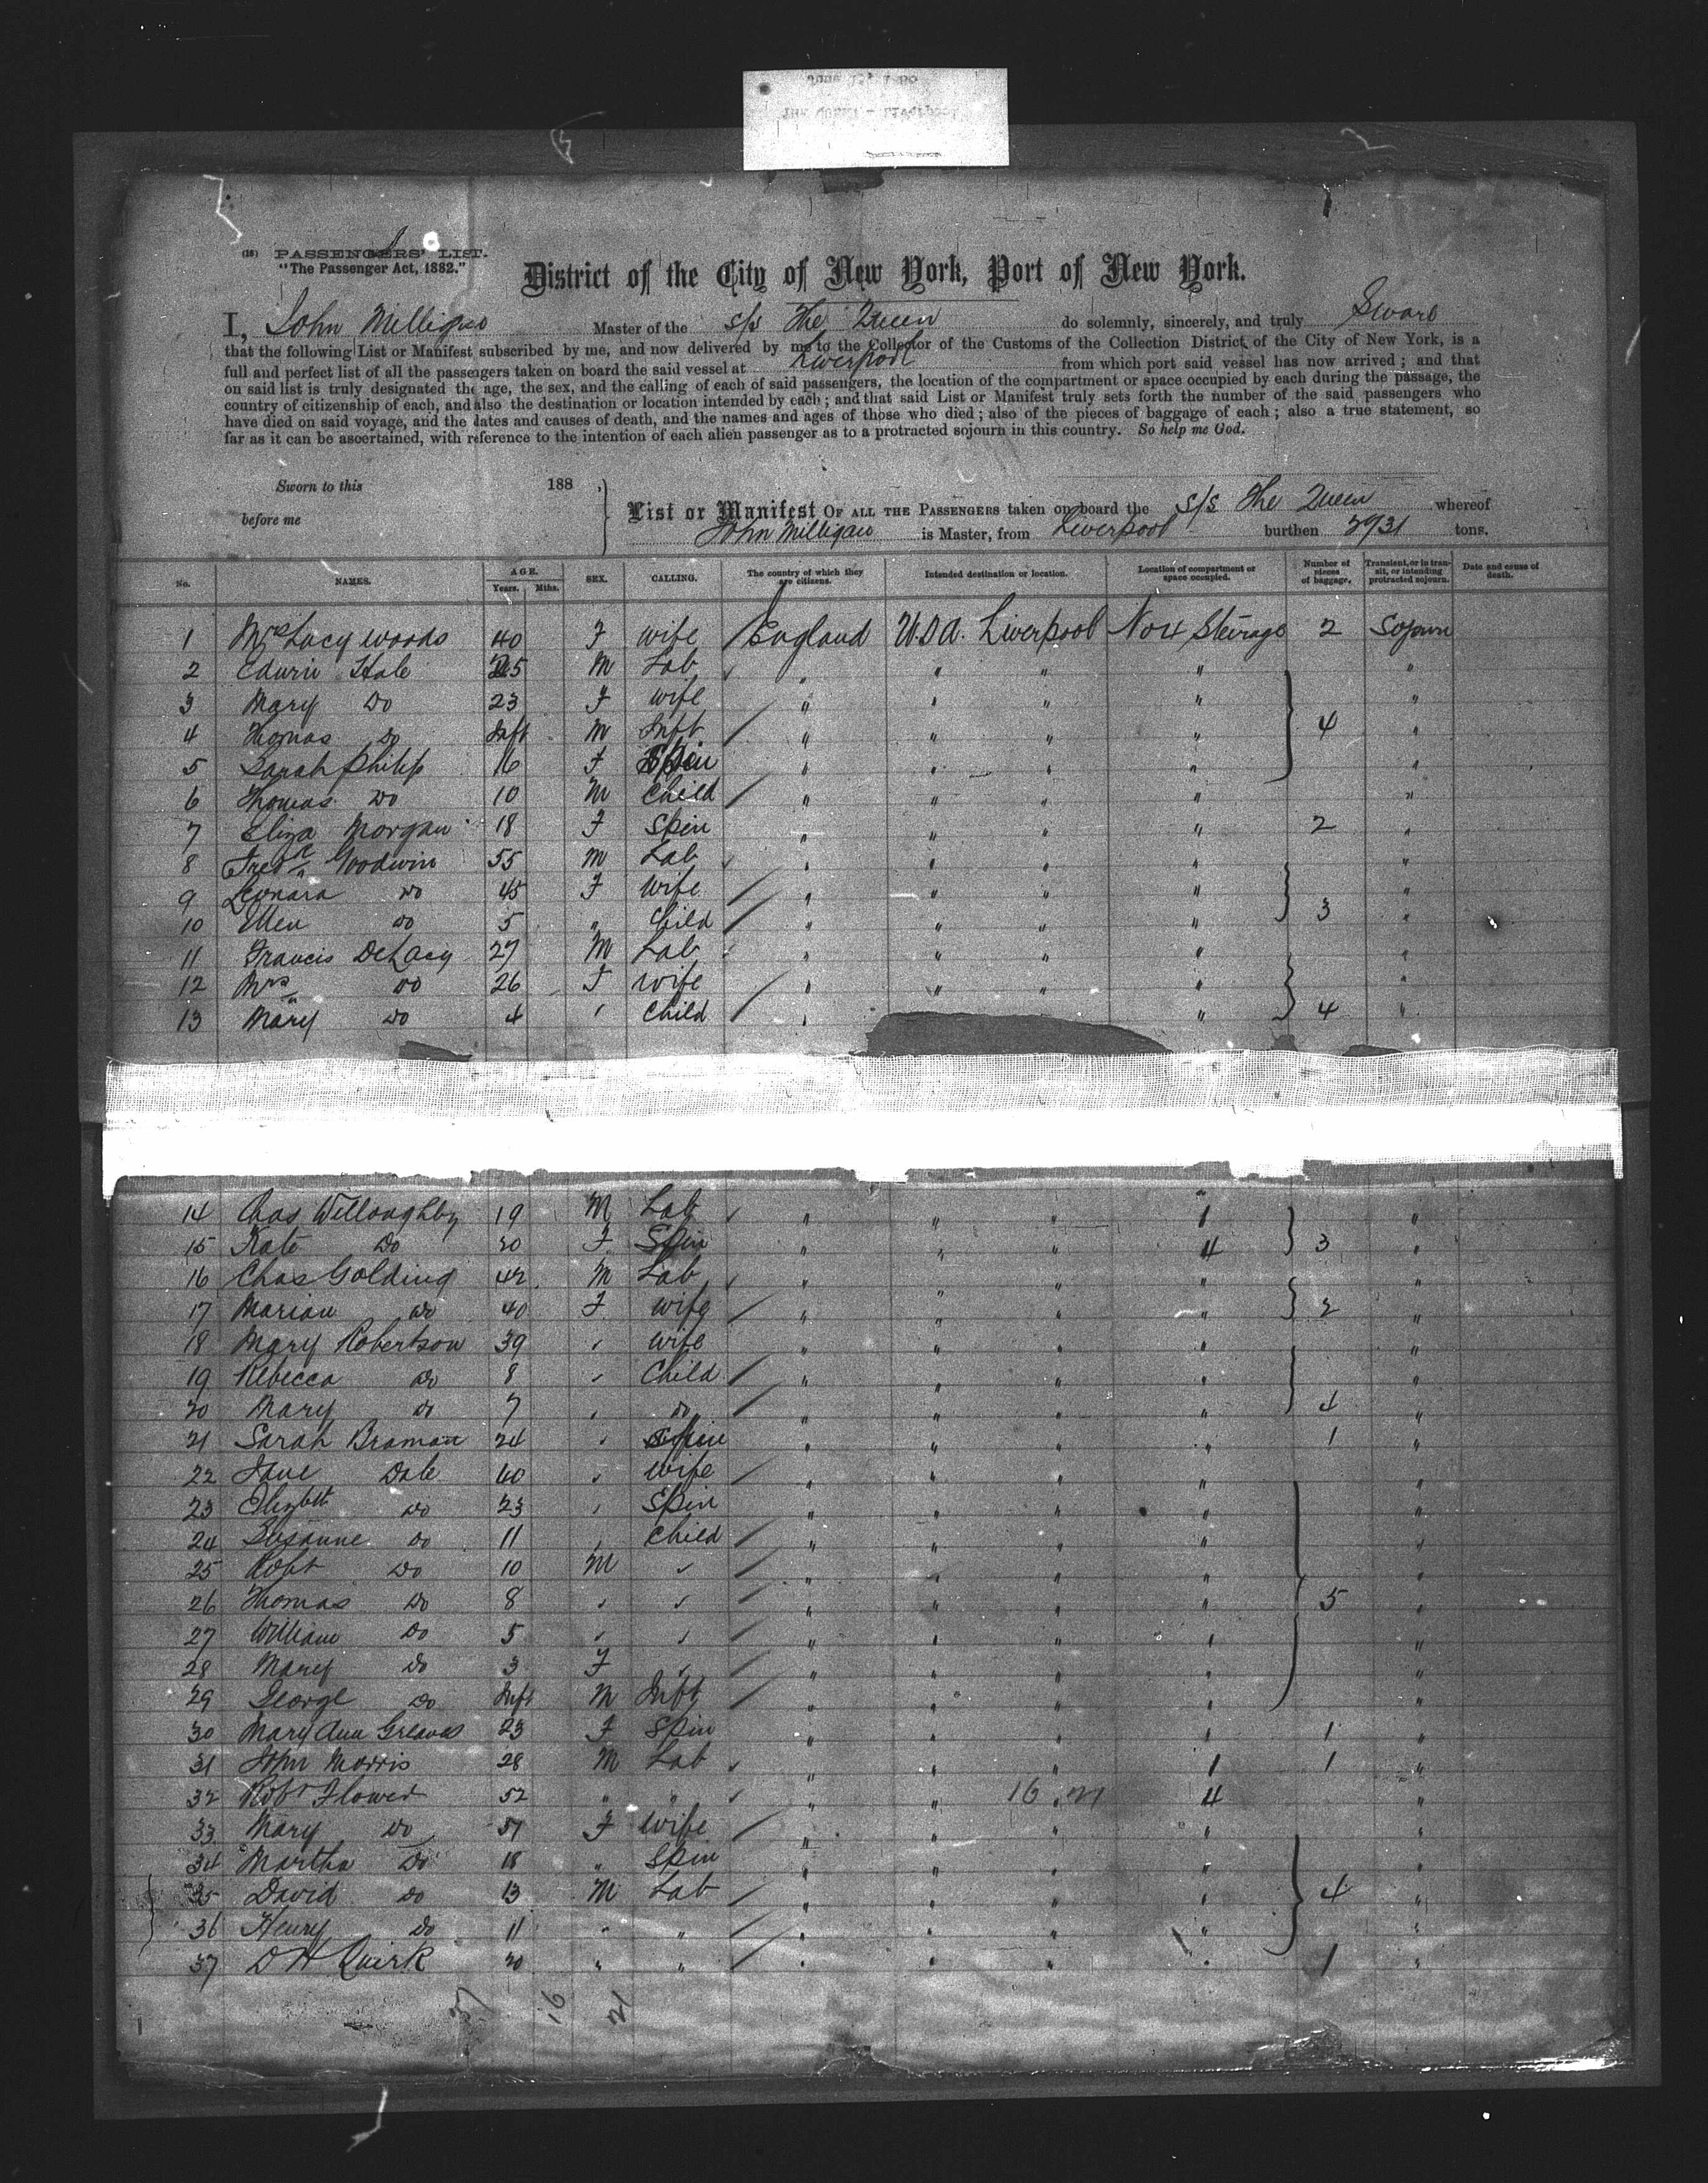 (18) PASSENGERS' LIST.
"The Passenger Act, 1882."
District of the City of New York, Port of New York.
I, John Milligan Master of the s/s The Queen do solemnly, sincerely, and truly Swear
that the following List or Manifest subscribed by me, and now delivered by me to the Collector of the Customs of the Collection District of the City of New York, is a
full and perfect list of all the passengers taken on board the said vessel at Liverpool from which port said vessel has now arrived; and that
on said list is truly designated the age, the sex, and the calling of each of said passengers, the location of the compartment or space occupied by each during the passage, the
country of citizenship of each, and also the destination or location intended by each; and that said List or Manifest truly sets forth the number of the said passengers who
have died on said voyage, and the dates and causes of death, and the names and ages of those who died; also of the pieces of baggage of each; also a true statement, so
far as it can be ascertained, with reference to the intention of each alien passenger as to a protracted sojourn in this country. So help me God.
Sworn to this 188 ,
before me
List or Manifest OF ALL THE PASSENGERS taken on board the s/s The Queen whereof
John Milligan is Master, from Liverpool burthen tons.
No. NAMES. AGE. Years. Mths. SEX. CALLING. The country of which they are citizens. Intended destination or location. Location of compartment or space occupied. Number of pieces of baggage. Transient, or in transit, or intending protracted sojourn. Date and cause of death.
1 Mrs Lucy Woods 40 F Wife England U.S.A. Liverpool No 4 Steerage 2 Sojourn
2 Edwin Hale 25 M Lab " " " " "
3 Mary Do 23 F Wife " " " " "
4 Thomas Do Inft M Inft " " " " 4 "
5 Sarah Philip 16 F Spin " " " " "
6 Thomas Do 10 M Child " " " " "
7 Eliza Morgan 18 F Spin " " " " 2 "
8 Fredk Goodwin 55 M Lab " " " " "
9 Leonara Do 45 F Wife " " " " "
10 Ellen Do 5 " Child " " " " 3 "
11 Francis DeLacy 27 M Lab " " " " "
12 Mrs Do 26 F Wife " " " " "
13 Mary Do 4 " Child " " 4 "
14 Chas Willoughby 19 M Lab " " " 1 "
15 Kate Do 20 F Spin " " " 4 3 "
16 Chas Golding 42 M Lab " " " " "
17 Marian Do 40 F Wife " " " " 2 "
18 Mary Robertson 39 " Wife " " " " "
19 Rebecca Do 8 " Child " " " " "
20 Mary Do 7 " Do " " " " 4 "
21 Sarah Braman 24 " Spin " " " " 1 "
22 Jane Dale 40 " Wife " " " " "
23 Elizbth Do 23 " Spin " " " " "
24 Susanne Do 11 " Child " " " " "
25 Robt Do 10 M " " " " " "
26 Thomas Do 8 " " " " " " 5 "
27 William Do 5 " " " " " " "
28 Mary Do 3 F " " " " " "
29 George Do Inft M Inft " " " " "
30 Mary Ann Greaves 23 F Spin " " " " 1 "
31 John Morris 28 M Lab " " " 1 1 "
32 Robt Flower 52 " " " " 16 . 21 4 "
33 Mary Do 51 F Wife " " " " "
34 Martha Do 18 " Spin " " " " "
35 David Do 13 M Lab " " " " 4 "
36 Henry Do 11 " " " " " " "
37 D H Quirk 20 " " " " " " 1 "
37 16 21